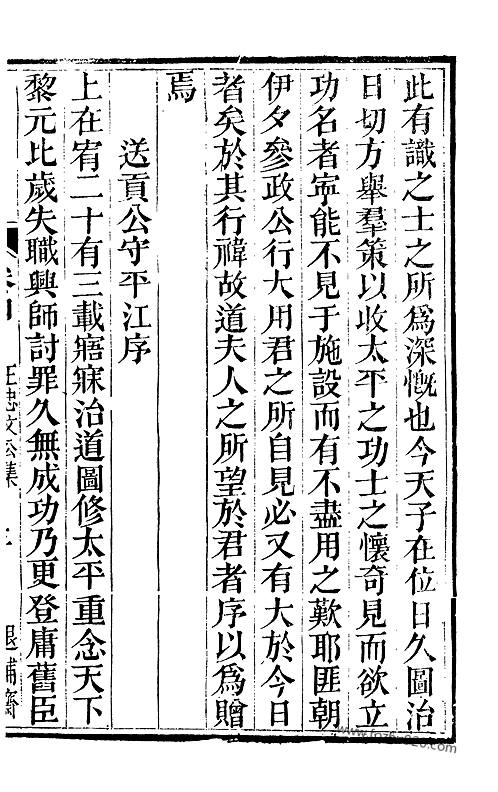 此有識之士之所爲深慨也今天子在位日久圖治
日切方舉羣策以收太平之功士之懷奇見而欲立
功名者寧能不見于施設而有不盡用之歎耶匪朝
伊夕參政公行大用君之所自見必又有大於今日
者矣於其行禕故道夫人之所望於君者序以爲贈
焉
送貢公守平江序
上在宥二十有三載寤寐治道圖修太平重念天下
黎元比歲失職興師討罪久無成功乃更登庸舊臣
王忠文公集
退補齋